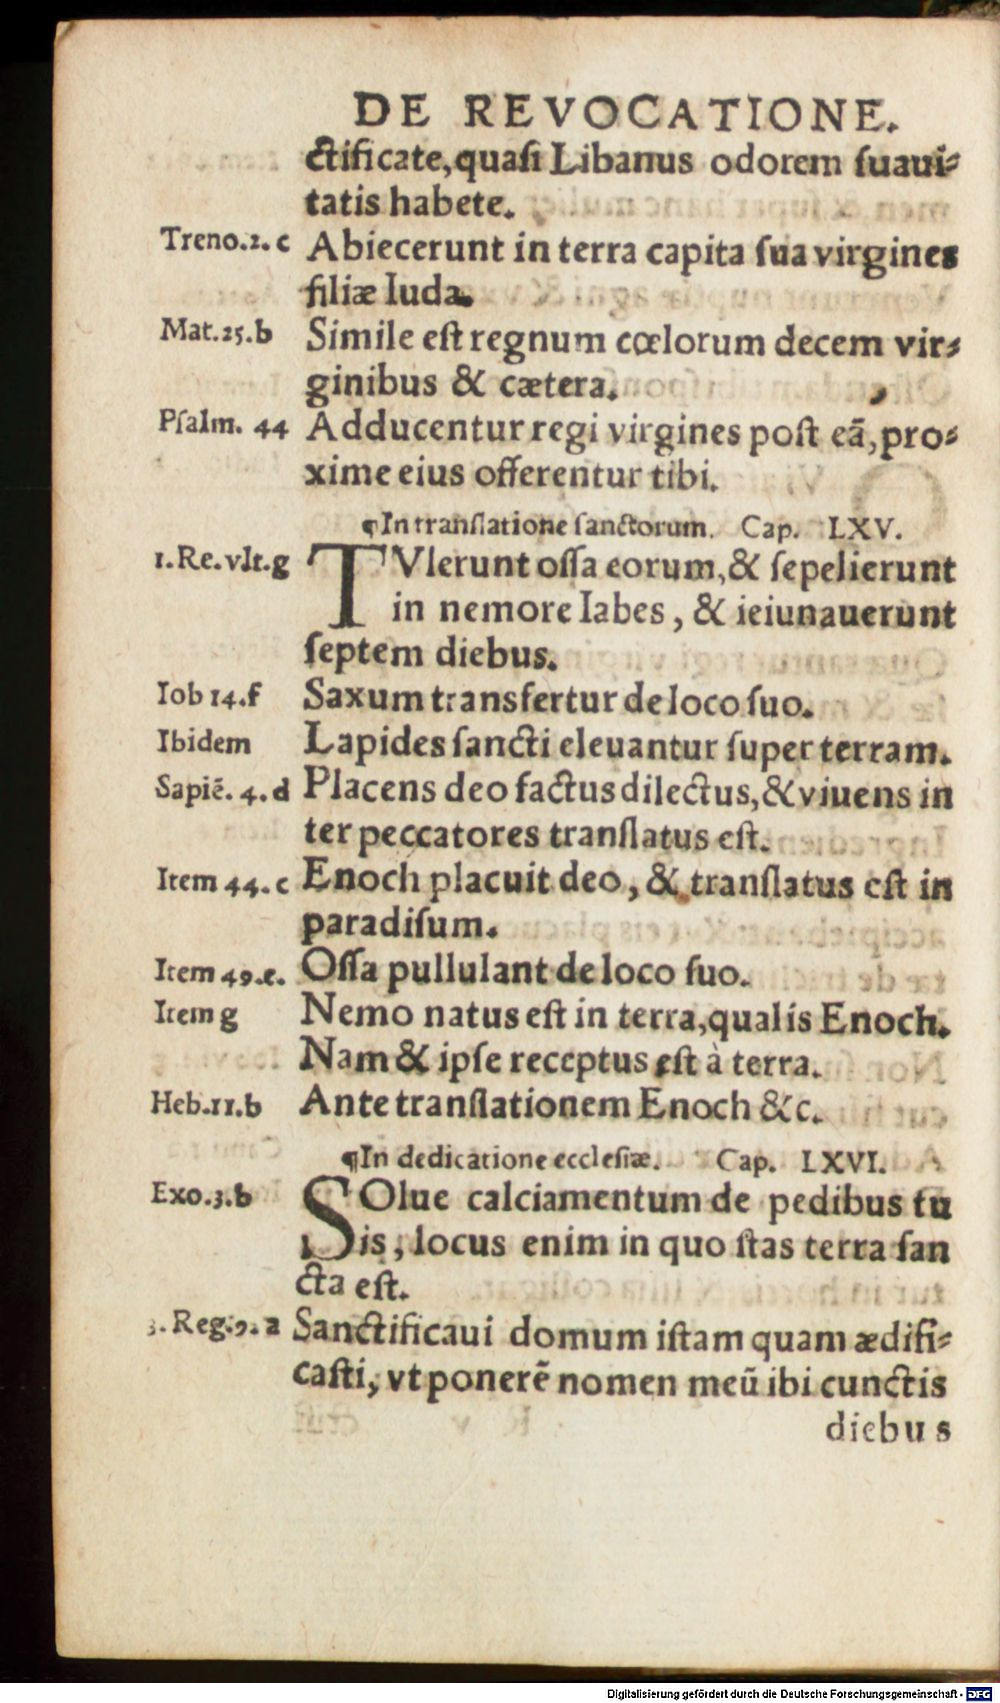 DE REVOCATIONE.
ctificate, quasi Libanus odorem ſuaui⸗
tatis habete.
Treno.2.c Abiecerunt in terra capita ſua virgines
filiæ Iuda.
Mat.25.b Simile eſt regnum cœlorum decem vir⸗
ginibus & cætera.
Pſalm. 44 Adducentur regi virgines poſt eã, pro⸗
xime eius offerentur tibi.
¶In tranſlatione ſanctorum. Cap. LXV.
1.Re.vlt.g TVlerunt oſſa eorum, & ſepelierunt
in nemore Iabes, & ieiunauerunt
ſeptem diebus.
Iob 14.f Saxum transfertur de loco ſuo.
Ibidem Lapides ſancti eleuantur ſuper terram.
Sapiẽ. 4.d Placens deo factus dilectus, & viuens in
ter peccatores tranſlatus eſt.
Item 44.c Enoch placuit deo, & tranſlatus eſt in
paradiſum.
Item 49.e. Oſſa pullulant de loco ſuo.
Item g Nemo natus eſt in terra, qualis Enoch.
Nam & ipſe receptus eſt à terra.
Heb.11.b Ante tranſlationem Enoch &c.
¶In dedicatione eccleſiæ. Cap. LXVI.
Exo.3.b SOlue calciamentum de pedibus tu
is, locus enim in quo ſtas terra ſan
cta eſt.
3.Reg.9.a Sanctificaui domum iſtam quam ædifi⸗
caſti, vt ponerẽ nomen meũ ibi cunctis
diebus
Digitalisierung gefördert durch die Deutsche Forschungsgemeinschaft - DFG